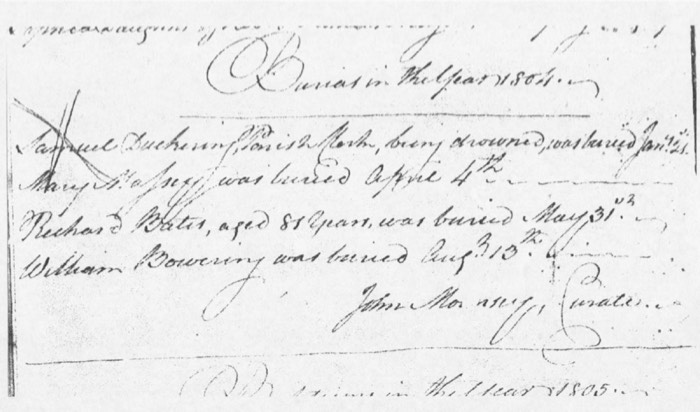 Burials in the Year 1804.
Samuel Duckering, Parish Clerk, being drowned, was buried Janry 21st.
Mary Massey was buried April 4th
Richard Bates, aged 81 years, was buried May 31st.
William Bowering was buried Augst 13th.
John Massey, Curate.
in the Year 1805.